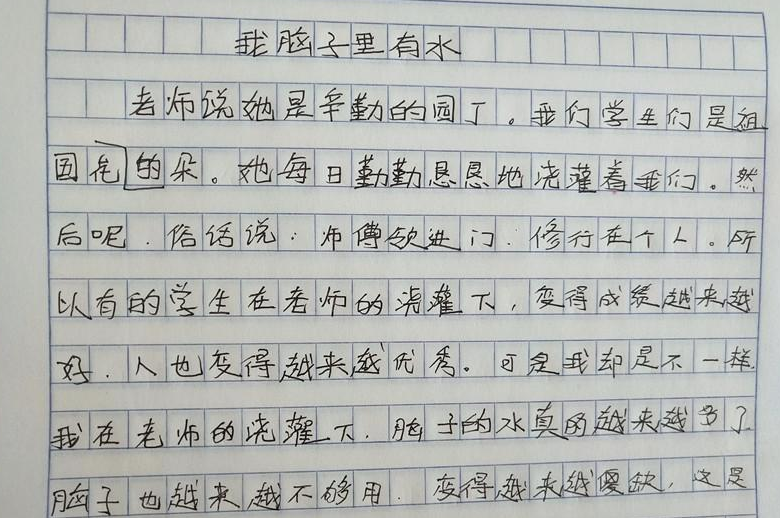 我脑子里有水
老师说她是辛勤的园丁。我们学生们是祖
国花的朵。她每日勤勤恳恳地浇灌着我们。然
后呢.俗话说:师傅领进门.修行在个人。所
以有的学生在老师的浇灌下,变得成绩越来越
好.人也变得越来越优秀。可是我却是不一样.
我在老师的浇灌下.脑子的水真的越来越多了
脑子也越来越不够用.变得越来越傻缺,这是